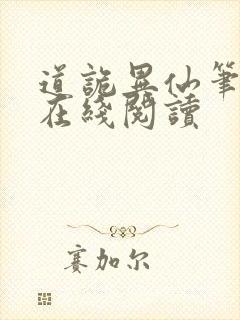 道詭異仙筆
在綫閱讀
賽加尔